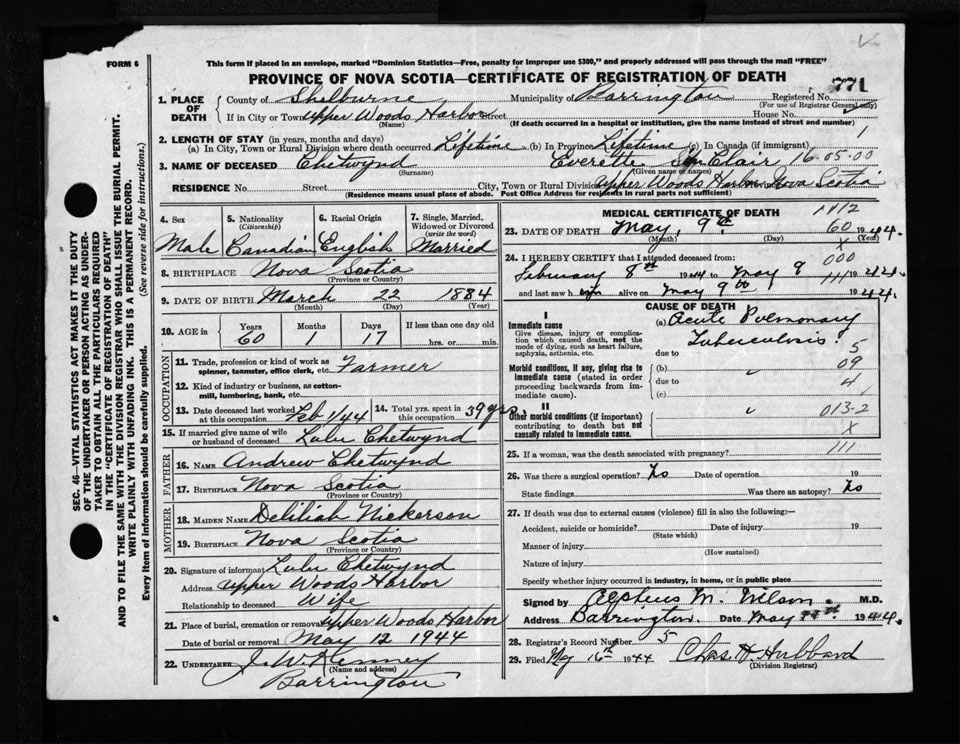 FORM 6
This form if placed in an envelope, marked "Dominion Statistics—Free, penalty for improper use $300," and properly addressed will pass through the mail "FREE"
PROVINCE OF NOVA SCOTIA—CERTIFICATE OF REGISTRATION OF DEATH
771
1. PLACE OF DEATH
County of Shelburne Municipality of Barrington Registered No.
(For use of Registrar General only)
If in City or Town Upper Woods Harbor Street House No.
(Name) (If death occurred in a hospital or institution, give the name instead of street and number)
2. LENGTH OF STAY (in years, months and days)
(a) In City, Town or Rural Division where death occurred Lifetime (b) In Province Lifetime (c) In Canada (if immigrant) 1
3. NAME OF DECEASED Chetwynd Everette Sinclair 16-05-00
(Surname) (Given name or names)
RESIDENCE No. Street City, Town or Rural Division Upper Woods Harbor Nova Scotia
(Residence means usual place of abode. Post Office Address for residents in rural parts not sufficient)
SEC. 46—VITAL STATISTICS ACT MAKES IT THE DUTY
OF THE UNDERTAKER OR PERSON ACTING AS UNDERTAKER
TO OBTAIN ALL THE PARTICULARS REQUIRED
IN THE "CERTIFICATE OF REGISTRATION OF DEATH"
AND TO FILE THE SAME WITH THE DIVISION REGISTRAR WHO SHALL ISSUE THE BURIAL PERMIT.
WRITE PLAINLY WITH UNFADING INK. THIS IS A PERMANENT RECORD.
Every item of information should be carefully supplied. (See reverse side for instructions.)
4. Sex
Male
5. Nationality
(Citizenship)
Canadian
6. Racial Origin
English
7. Single, Married, Widowed or Divorced
(write the word)
Married
8. BIRTHPLACE Nova Scotia
(Province or Country)
9. DATE OF BIRTH March 22 1884
(Month) (Day) (Year)
10. AGE in Years Months Days If less than one day old
60 1 17 hrs. or min.
OCCUPATION
11. Trade, profession or kind of work as spinner, teamster, office clerk, etc. Farmer
12. Kind of industry or business, as cotton-mill, lumbering, bank, etc.
13. Date deceased last worked at this occupation Feb 1/44
14. Total yrs. spent in this occupation 39 yrs.
15. If married give name of wife or husband of deceased Lulu Chetwynd
FATHER
16. NAME Andrew Chetwynd
17. BIRTHPLACE Nova Scotia
(Province or Country)
MOTHER
18. MAIDEN NAME Deliliah Nickerson
19. BIRTHPLACE Nova Scotia
(Province or Country)
20. Signature of informant Lulu Chetwynd
Address Upper Woods Harbor
Relationship to deceased Wife
21. Place of burial, cremation or removal Upper Woods Harbor
Date of burial or removal May 12 1944
22. UNDERTAKER J. W. Kenney
(Name and address)
Barrington
MEDICAL CERTIFICATE OF DEATH
23. DATE OF DEATH May, 9th 1944.
(Month) (Day) (Year)
60
X
24. I HEREBY CERTIFY that I attended deceased from:
000
February 8th 1944 to May 9 1944.
111
and last saw him alive on May 9th 1944.
CAUSE OF DEATH
I
Immediate cause
Give disease, injury or complication which caused death, not the mode of dying, such as heart failure, asphyxia, asthenia, etc.
(a) Acute Pulmonary
Tuberculosis.
due to
5
Morbid conditions, if any, giving rise to immediate cause (stated in order proceeding backwards from immediate cause).
(b)
09
due to
4
(c)
II
Other morbid conditions (if important) contributing to death but not causally related to immediate cause.
013-2
X
25. If a woman, was the death associated with pregnancy?
111
26. Was there a surgical operation? No Date of operation 19
State findings Was there an autopsy? No
27. If death was due to external causes (violence) fill in also the following:—
Accident, suicide or homicide? Date of injury 19
(State which)
Manner of injury
(How sustained)
Nature of injury
Specify whether injury occurred in industry, in home, or in public place
Signed by Alpheus M. Wilson. M.D.
Address Barrington. Date May 1944.
28. Registrar's Record Number 5
29. Filed My 16th 1944 Chas. H. Hubbard
(Division Registrar)